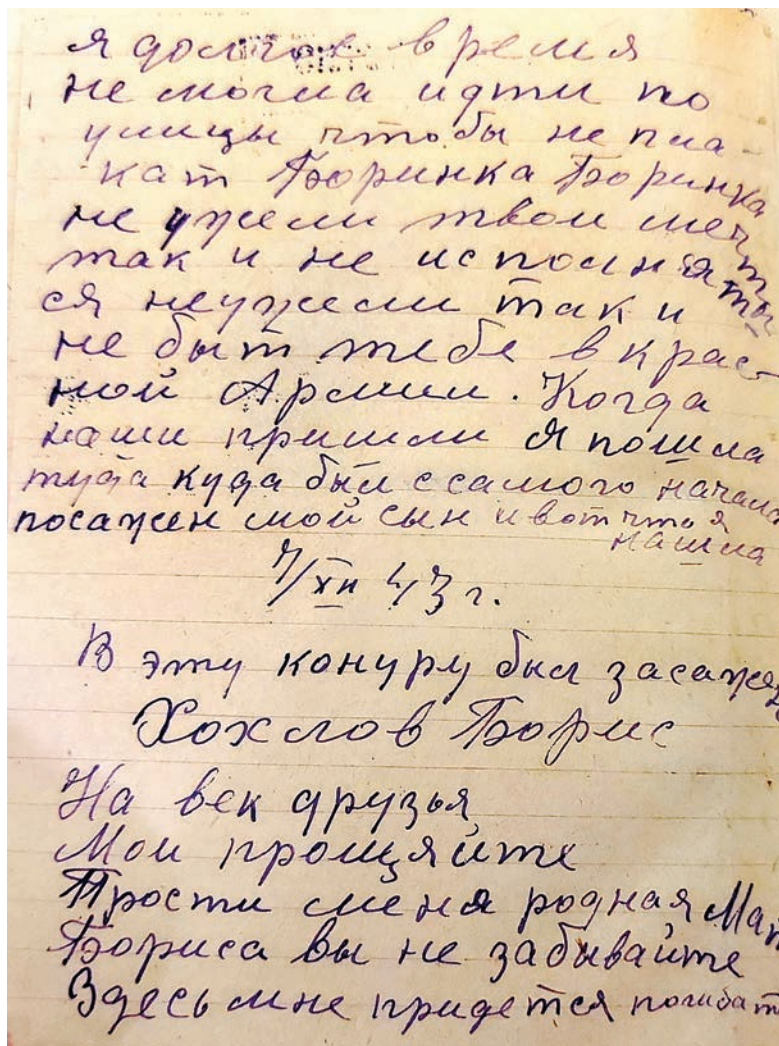 я долгое время
не могла идти по
улицы чтобы не пла-
кат Боринка Боринка
не ужели твои мечты
так и не исполнят
ся неужели так и
не быт тебе в крас-
ной Армии. Когда
наши пришли я пошла
туда куда был с самого начала
посажен мой сын и вот что я
нашла
7/XII 43 г.
В эту конуру был засажен
Хохлов Борис
На век друзья
Мои прощяйте
Прости меня родная Мать
Бориса вы не забывайте
Здесь мне придется погибат